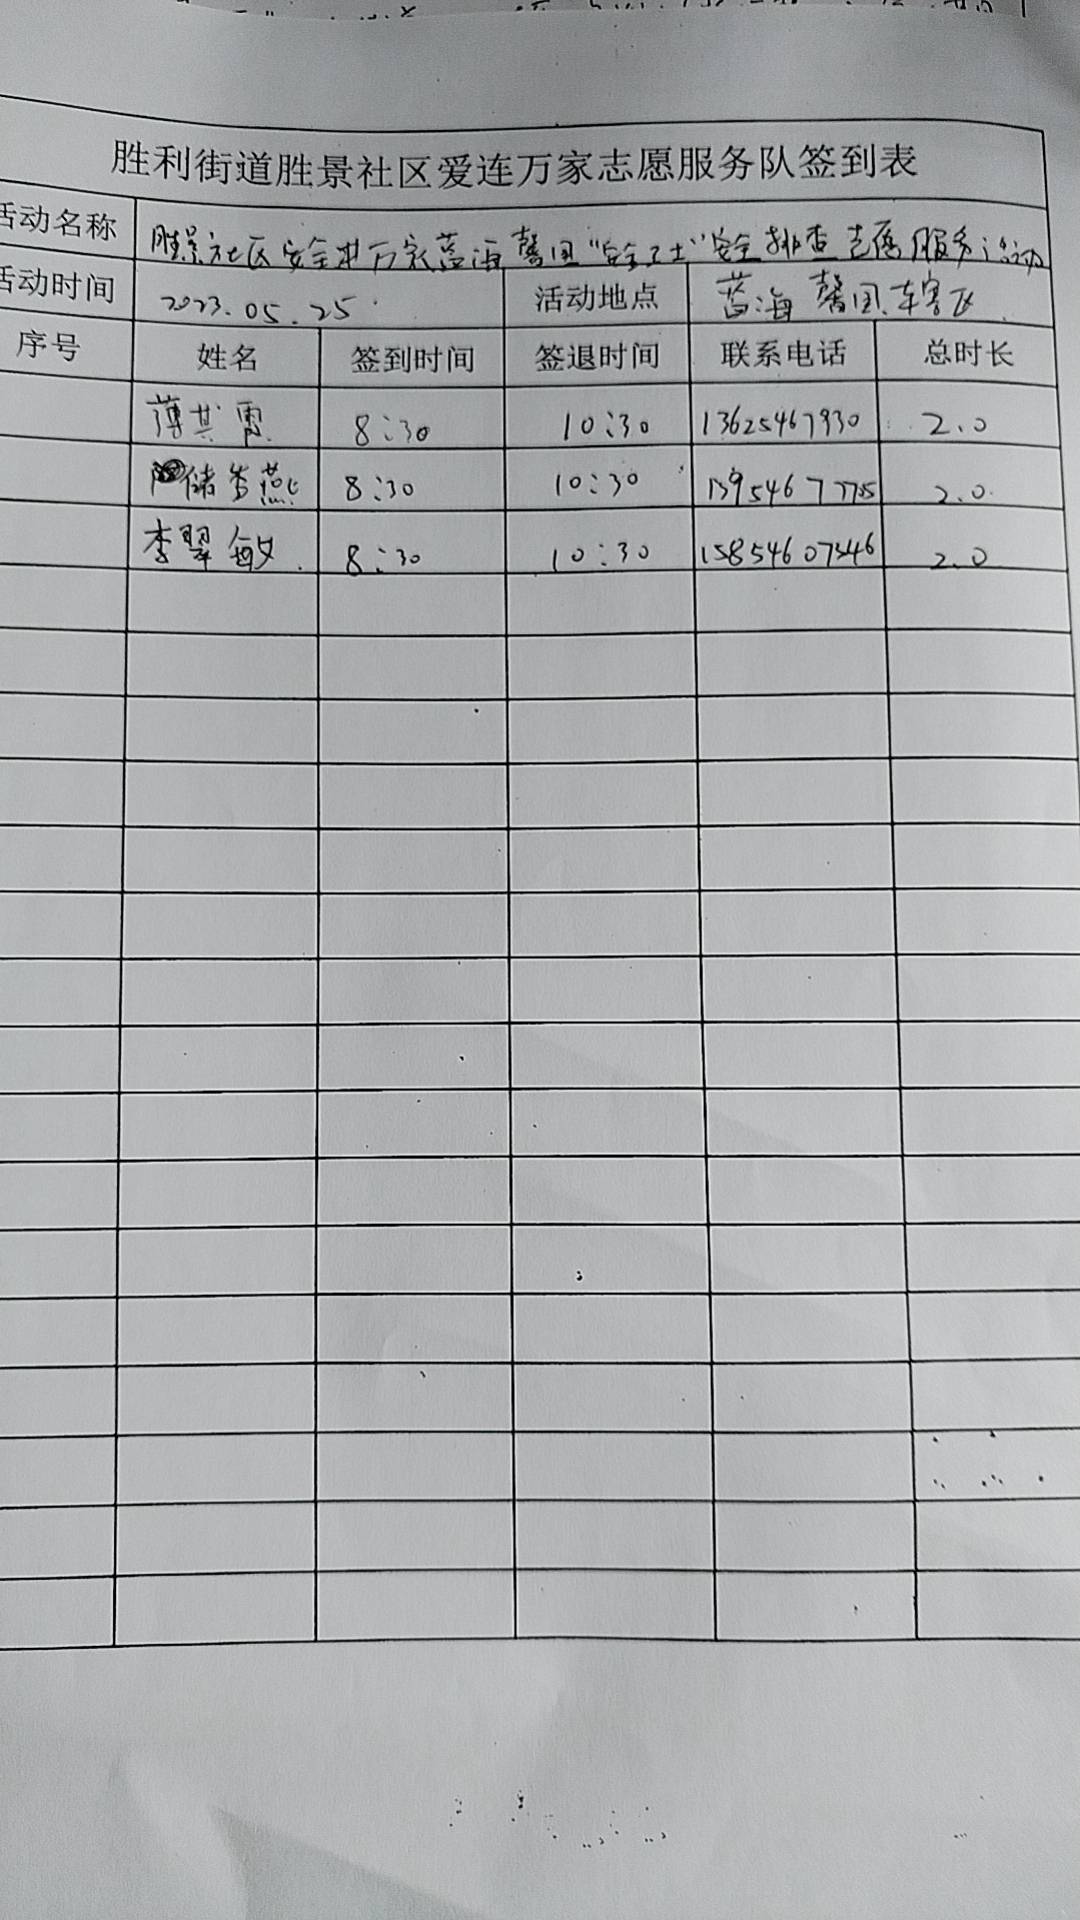 胜利街道胜景社区爱连万家志愿服务队签到表
活动名称 胜景社区安全进万家蓝海馨园“安全卫士”安全排查志愿服务活动
活动时间 2023.05.25 活动地点 蓝海馨园车害区
序号 姓名 签到时间 签退时间 联系电话 总时长
薄其霞 8:30 10:30 13625467930 2.0
储 燕 8:30 10:30 13954677705 2.0
李翠敏 8:30 10:30 15854607546 2.0